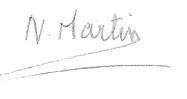 N. Martin